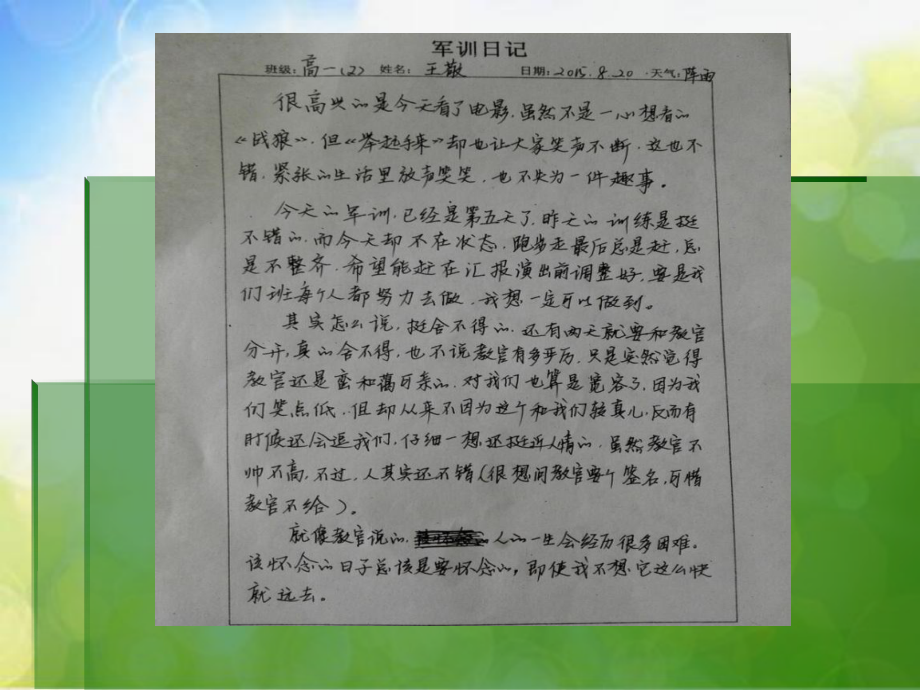 军训日记
班级：高一(2) 姓名：王敬 日期：2015.8.20 天气：阵雨
很高兴的是今天看了电影，虽然不是一心想看的
《战狼》，但《举起手来》却也让大家笑声不断，这也不
错，紧张的生活里放声笑笑，也不失为一件趣事。
今天的军训，已经是第五天了，昨天的训练是挺
不错的，而今天却不在状态，跑步走最后总是赶，总
是不整齐，希望能赶在汇报演出前调整好，要是我
们班每个人都努力去做，我想一定可以做到。
其实怎么说，挺舍不得的，还有两天就要和教官
分开，真的舍不得，也不说教官有多严厉，只是突然觉得
教官还是蛮和蔼可亲的，对我们也算是宽容了，因为我
们笑点低，但却从来不因为这个和我们较真儿，反而有
时候还会逗我们，仔细一想还挺近人情的，虽然教官不
帅不高，不过，人其实还不错（很想问教官要个签名，可惜
教官不给）。
就像教官说的，人的一生会经历很多困难。
该怀念的日子总该是要怀念的，即使我不想它这么快
就远去。